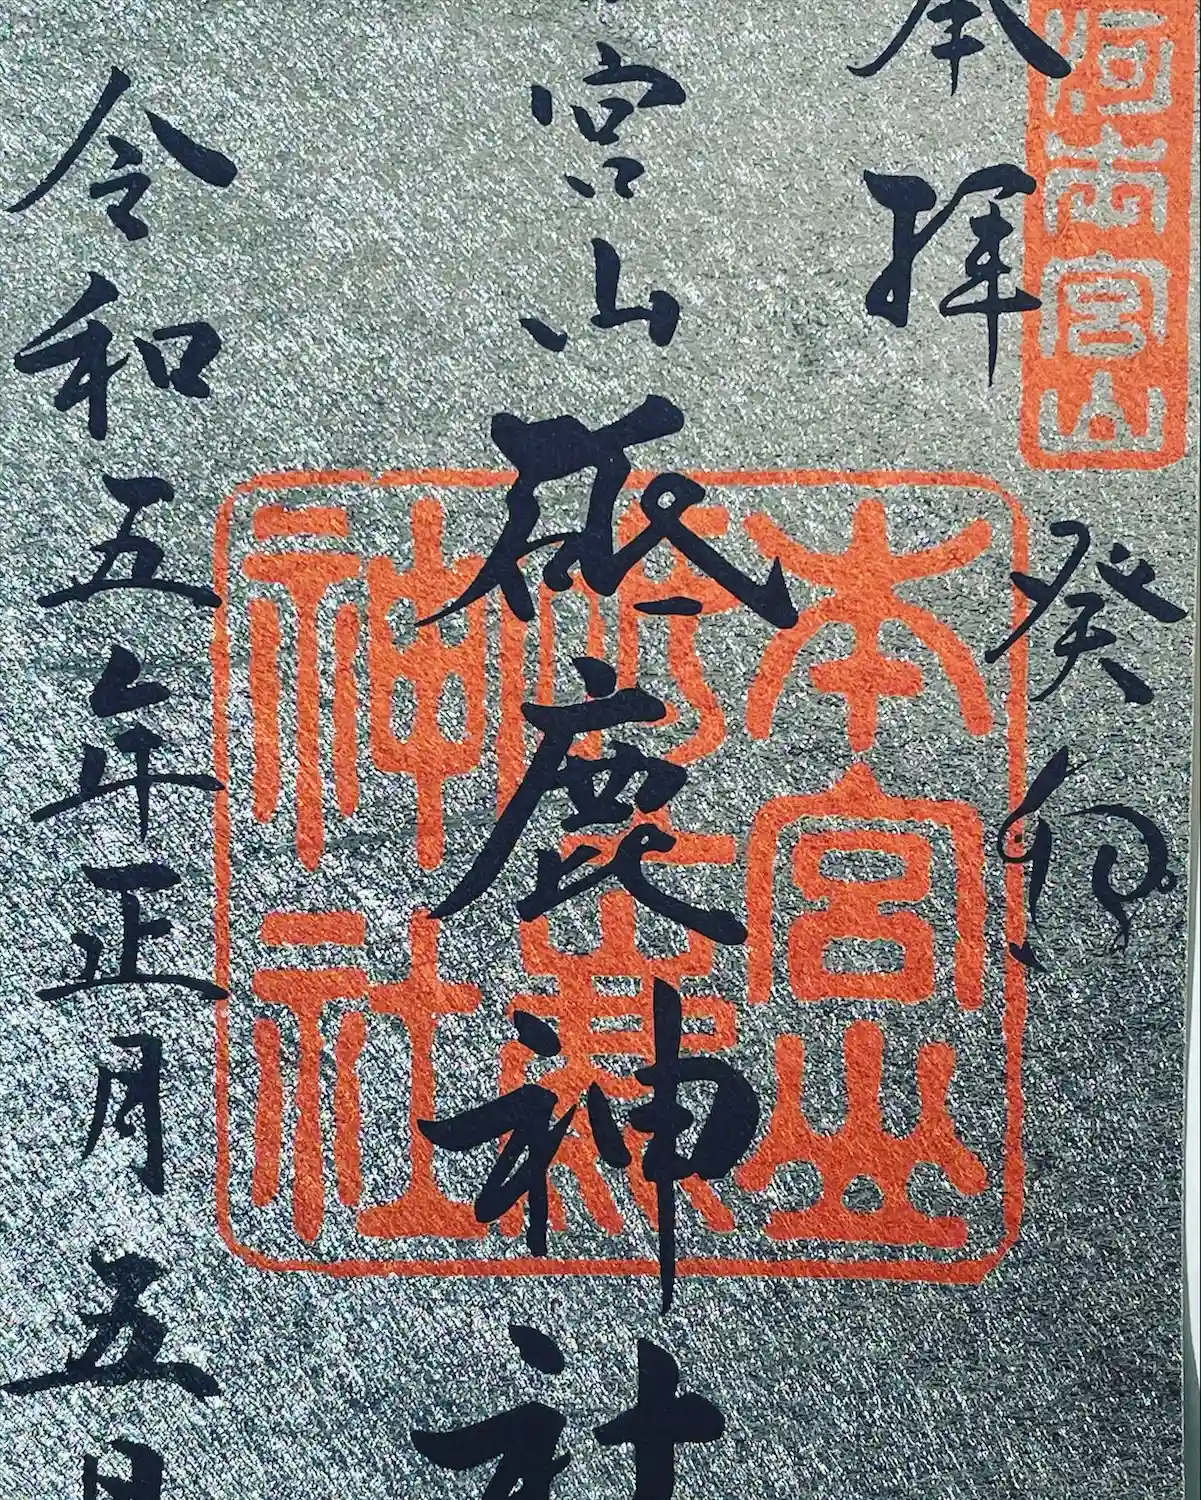 宮山
奉拝
癸卯
宮山砥鹿神社
令和五年正月五日
本宮山
砥鹿
神社